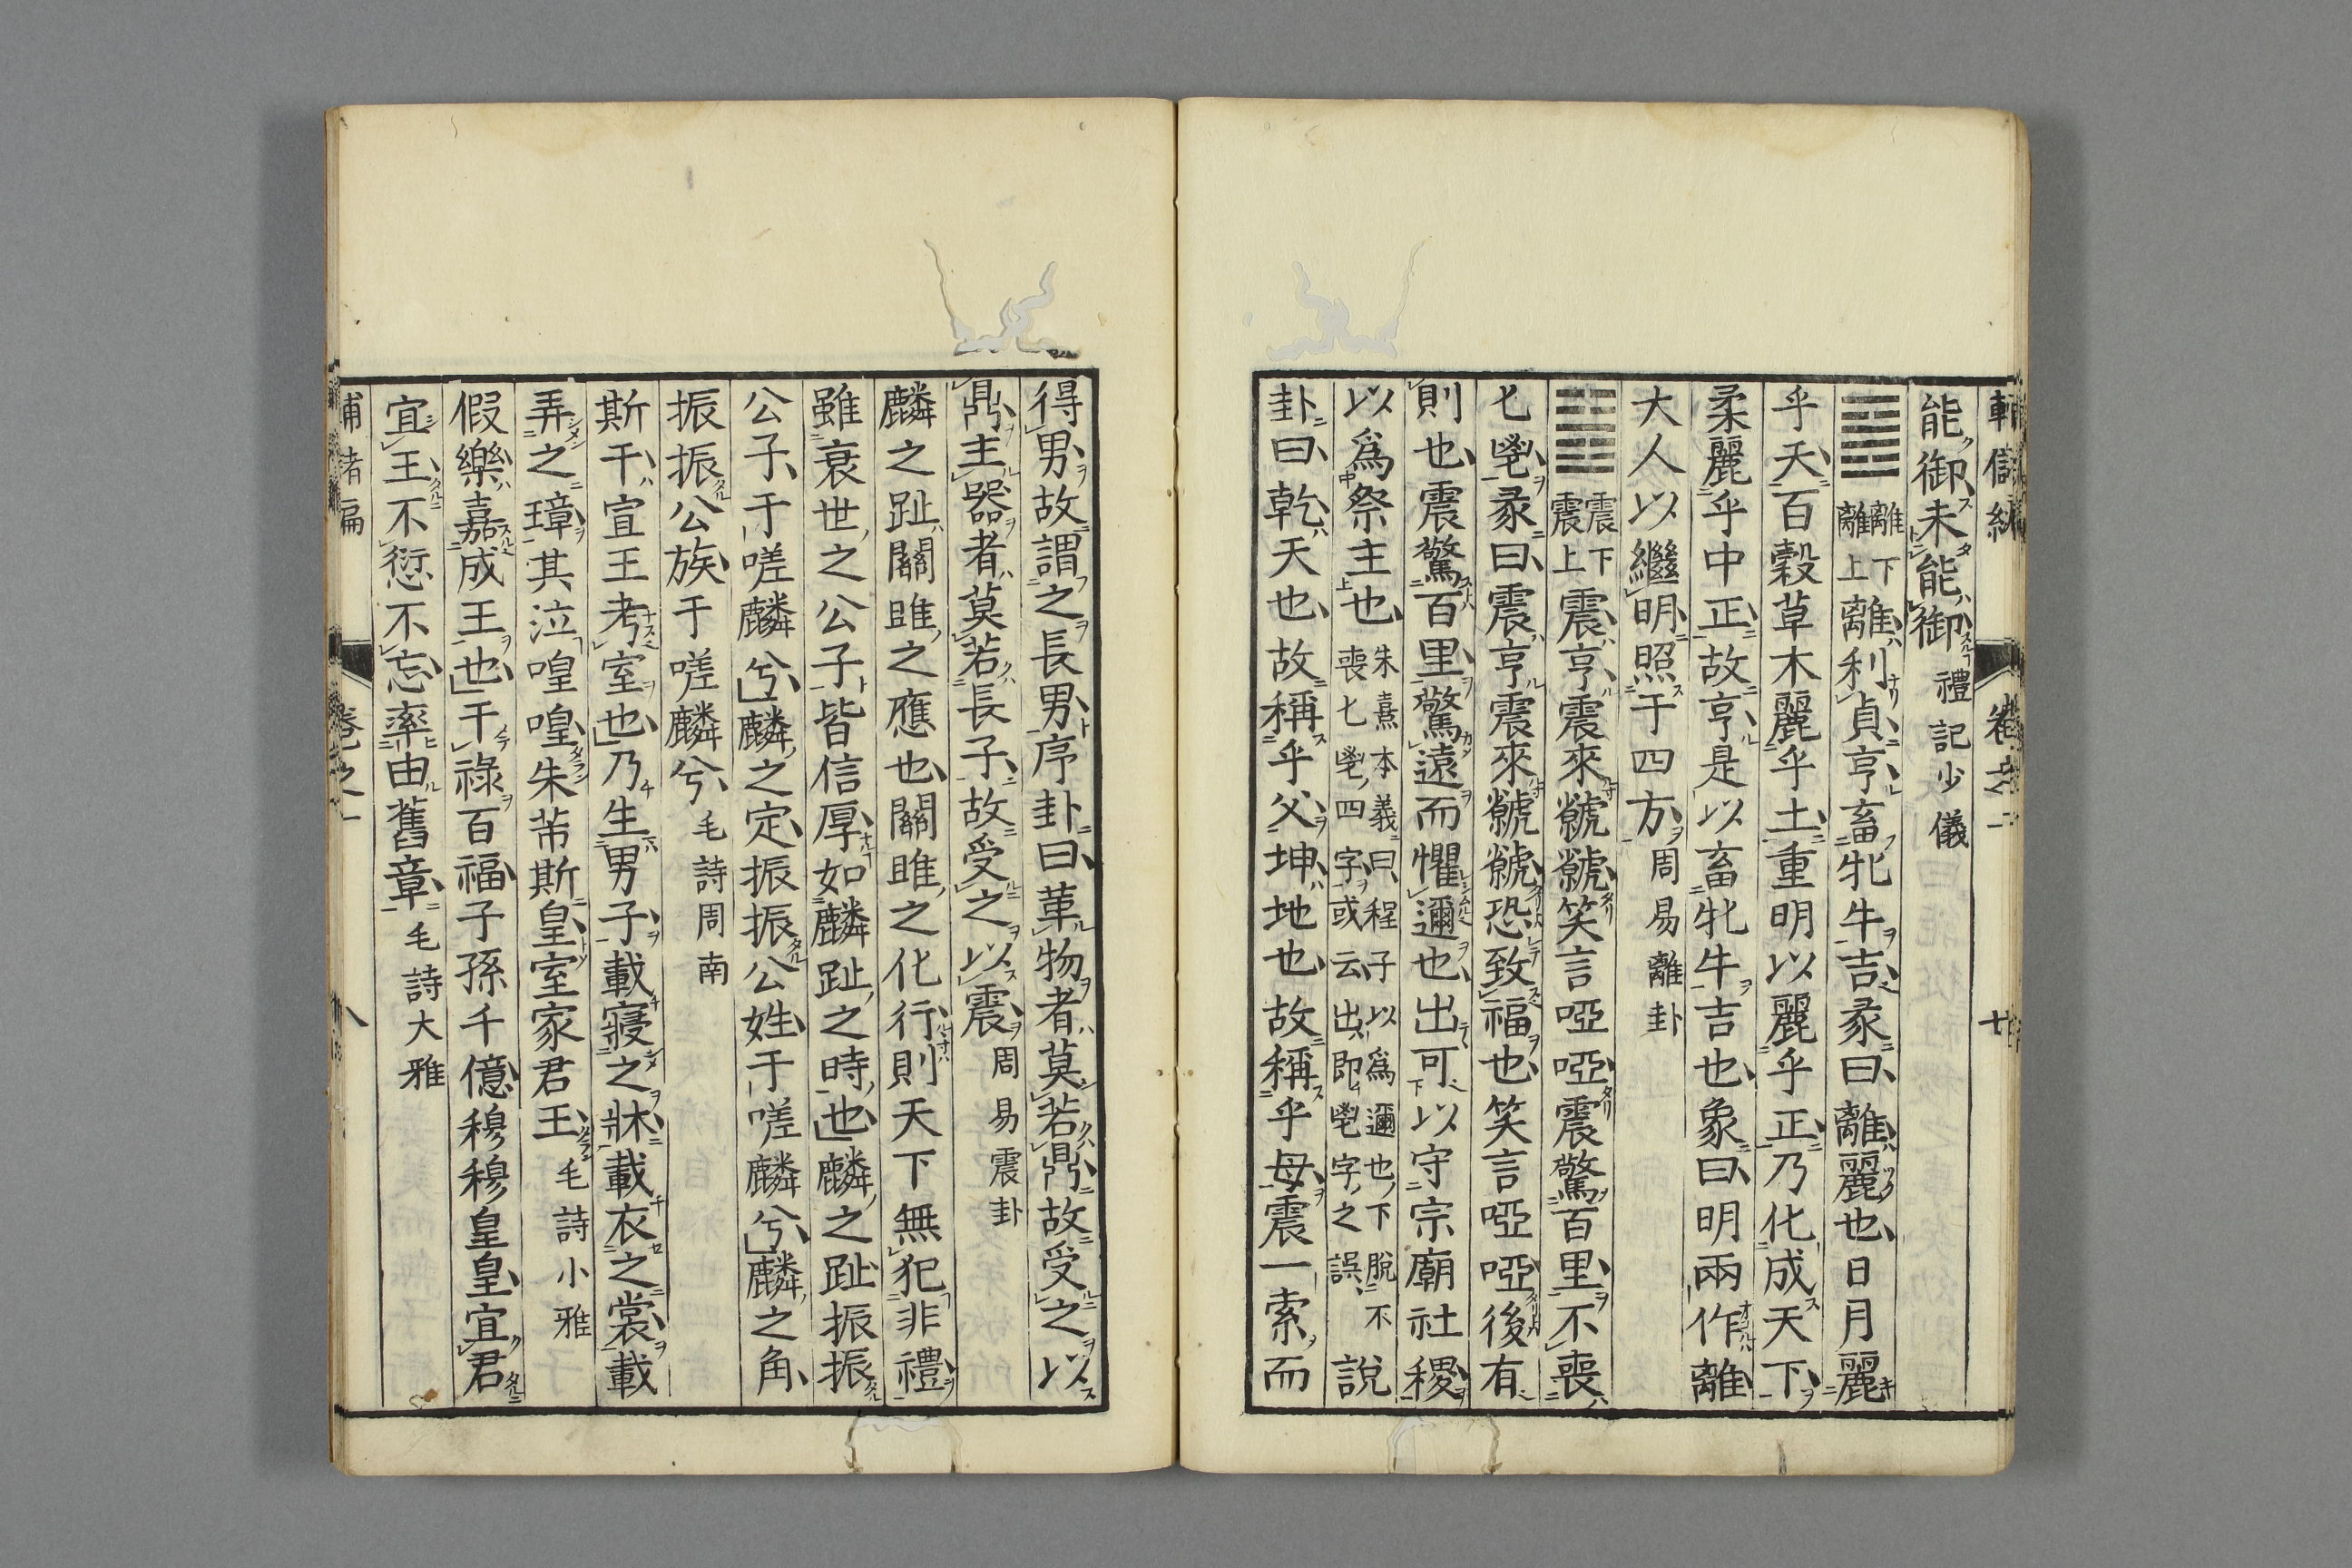 能御未能御 禮記少儀
離下離上 離利貞亨畜牝牛吉彖曰離麗也日月麗
乎天百穀草木麗乎土重明以麗乎正乃化成天下
柔麗乎中正故亨是以畜牝牛吉也象曰明兩作離
大人以繼明照于四方 周易離卦
震下震上 震亨震來虩虩笑言啞啞震驚百里不喪
匕鬯彖曰震亨震來虩虩恐致福也笑言啞啞後有
則也震驚百里驚遠而懼邇也出可以守宗廟社稷
以爲祭主也 朱熹本義曰程子以爲邇也下脫不喪匕鬯四字或云出即鬯字之誤 說
卦曰乾天也故稱乎父坤地也故稱乎母震一索而
得男故謂之長男序卦曰革物者莫若鼎故受之以
鼎主器者莫若長子故受之以震 周易震卦
麟之趾關雎之應也關雎之化行則天下無犯非禮
雖衰世之公子皆信厚如麟趾之時也麟之趾振振
公子于嗟麟兮麟之定振振公姓于嗟麟兮麟之角
振振公族于嗟麟兮 毛詩周南
斯干宣王考室也乃生男子載寢之牀載衣之裳載
弄之璋其泣喤喤朱芾斯皇室家君王 毛詩小雅
假樂嘉成王也干祿百福子孫千億穆穆皇皇宜君
宜王不愆不忘率由舊章 毛詩大雅
卷之一 八